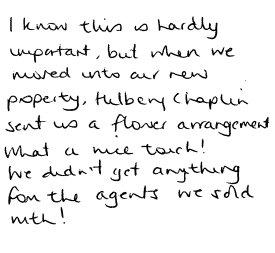 I know this is hardly
important, but when we
moved into our new
property, Hulbery Chaplin
sent us a flower arrangement
What a nice touch!
We didn't get anything
from the agents we sold
with!